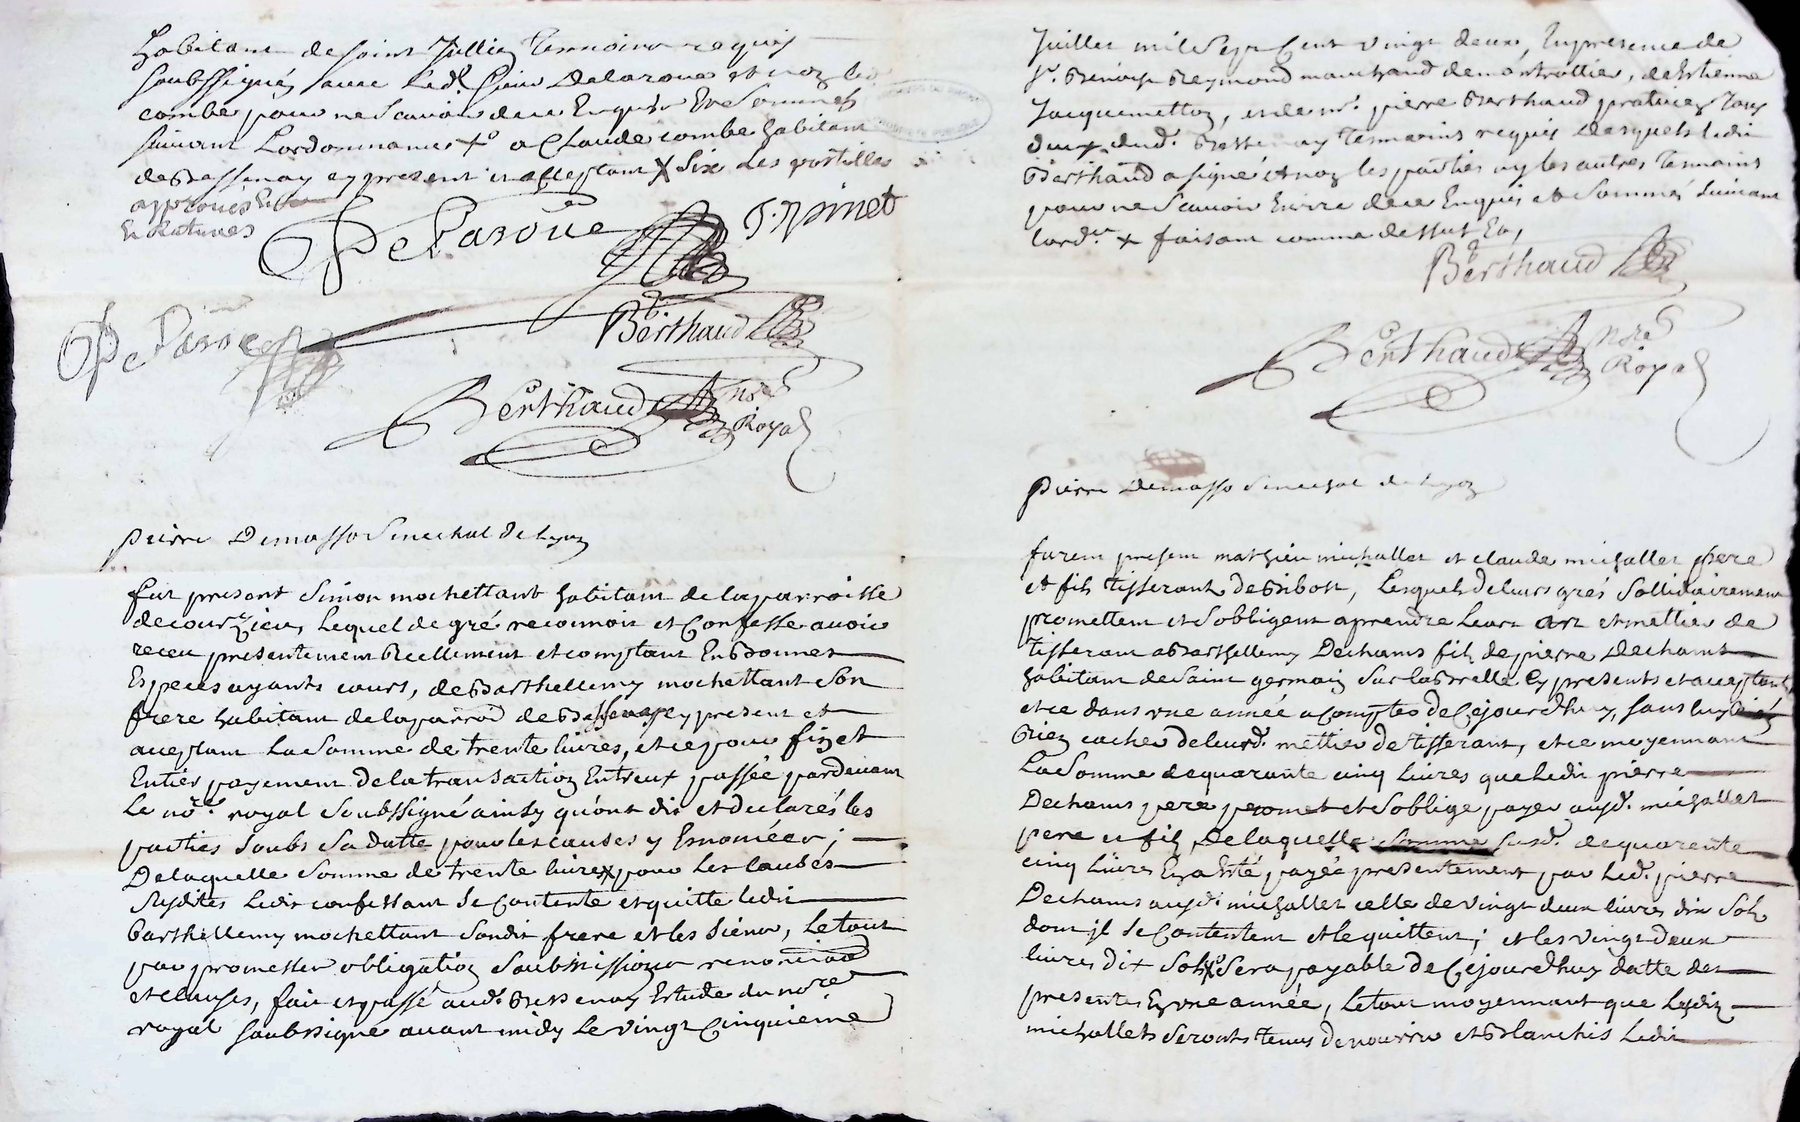 habitant de saint Jullien tesmoins requis
soubssignés avec led. sieur Delaroüe et non led.
combe pour ne scavoir de ce enquis et sommés
suivant lordonnance + a Claude combe habitant
de Bessenay cy present et acceptant X six des postilles
approuvés
et ratures
De Laroüe J. Pinet
De Laroüe Berthaud
Berthaud nore
Royal
pierre Demasso Senechal de Lyon
fut present Simon mochettant habitant de la parroisse
de courzieu, lequel de gré reconnoit et Confesse avoir
receu presentement reellement et comptant En bonnes
Especes ayants cours, de Barthellemy mochettant son
frere habitant de la parroi de Bessenay cy present et
acceptant la somme de trente livres, et ce pour fin et
Entier payement de la transaction Entreux passée pardevant
le nore. royal soubssigné ainsy quont dit et declarés les
parties soubs sa datte pour les causes y Enoncées;
De laquelle somme de trente livres pour les causes
susdites ledit confessant se contente et quitte ledit
Barthellemy mochettant sondit frere et les siens, le tout
par promesses obligation soubmissions renonciaon
et clauses, fait et passé aud. Bessenay Estude du nore
royal soubssigné avant midy le vingt Cinquieme
Juillet mil sept Cent vingt deux, En presence de
sr. Benoist Reymond marchand de montrottier, de Estienne
Jacquemetton, et de mr. pierre Berthaud praticien tous
deux dud. Bessenay tesmoins requis desquels ledit
Berthaud a signé et non les parties ny les autres tesmoins
pour ne scavoir Ecrire de ce Enquis et sommés suivant
lord.ce + faisant comme dessus
Berthaud
Berthaud nore
Royal
pierre Demasso Senechal de Lyon
furent present mathieu michallet et claude michallet pere
et fils tisserants de Bibost, lesquels de leurs grés sollidairement
promettent et sobligent aprendre leurs art et mettier de
tisserant a Barthellemy Dechams fils de pierre Dechams
habitant de Saint germain sur la Brelle cy presents et acceptants
et ce dans une année a compter de Cejourdhuy, sans luy
rien cacher de leurd. mettier de tisserant, et ce moyennant
la somme de quarante cinq livres que ledit pierre
Dechams pere promet et soblige payer ausd. michallet
pere et fils, De laquelle somme susd. de quarente
cinq livres En a Esté payée presentement par led. pierre
Dechams ausd. michallet celle de vingt deux livres dix sols
dont jl se Contentent et le quittent; et les vingt deux
livres dix sols sera payable de Cejourdhuy datte des
presentes En une année, le tout moyennant que lesdits
michallets seronts tenus de nourrir et Blanchir ledit